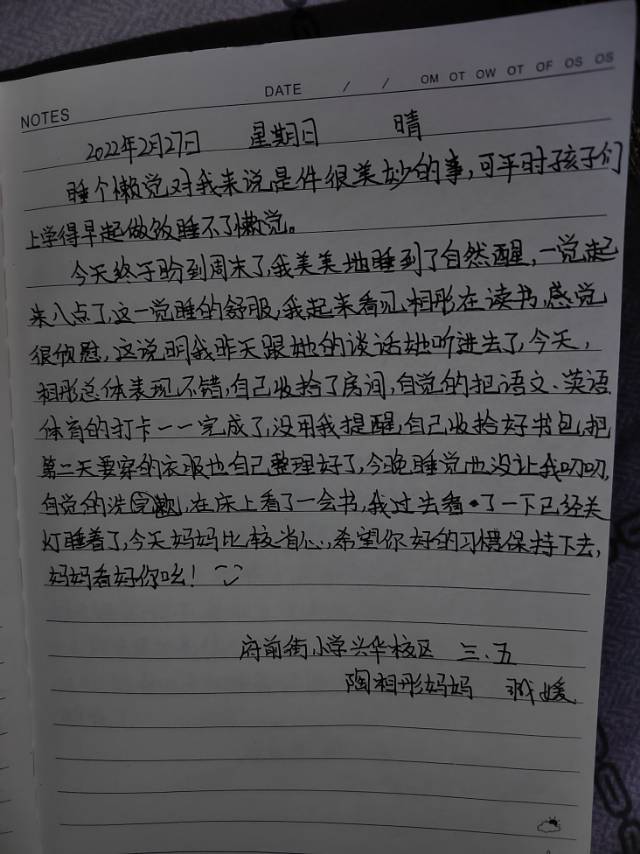 NOTES
DATE / / OM OT OW OT OF OS OS
2022年2月27日 星期日 晴
睡个懒觉对我来说是件很美妙的事,可平时孩子们
上学得早起做饭睡不了懒觉。
今天终于盼到周末了,我美美地睡到了自然醒,一觉起
来八点了,这一觉睡的舒服,我起来看见相彤在读书,感觉
很欣慰,这说明我昨天跟她的谈话她听进去了,今天,
相彤总体表现不错,自己收拾了房间,自觉的把语文、英语
体育的打卡一一完成了,没用我提醒,自己收拾好书包,把
第二天要穿的衣服也自己整理好了,今晚睡觉也没让我叨叨,
自觉的洗完漱,在床上看了一会书,我过去看了一下已经关
灯睡着了,今天妈妈比较省心,希望你好的习惯保持下去,
妈妈看好你吆!
府前街小学兴华校区 三.五
陶相彤妈妈 媛